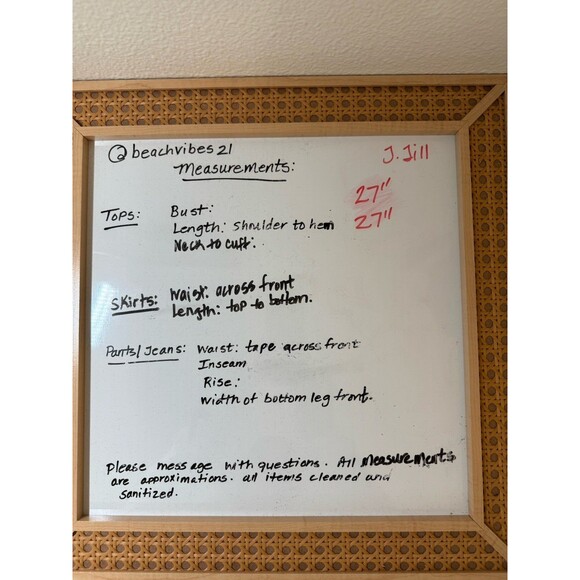 @beachvibes21
Measurements:
J. Jill
Tops: Bust: 27"
Length: Shoulder to hem 27"
Neck to cuff:
Skirts: Waist: across front
Length: top to bottom.
Pants/Jeans: Waist: tape across front
Inseam
Rise:
Width of bottom leg front.
Please message with questions. All measurements
are approximations. all items cleaned and
sanitized.